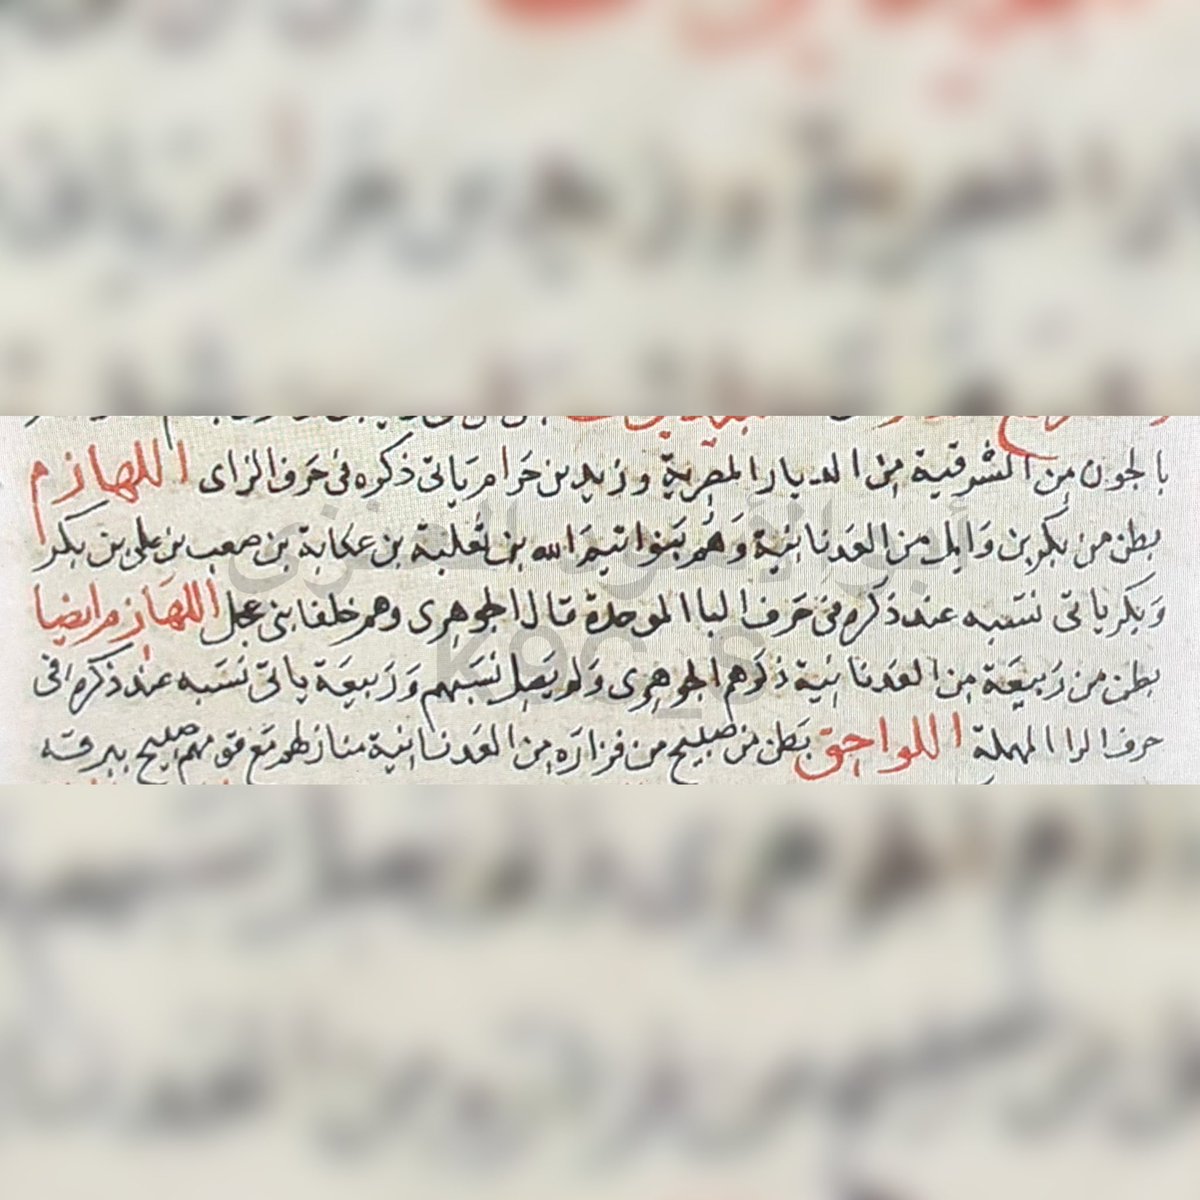 بالجون من الشرقية من الديار المصرية وزيد بن حرام ياتى ذكره فى حرف الزاى اللهازم
بطن من بكر بن وايل من العدنانية وهم بنوا تيم الله بن ثعلبة بن عكابة بن صعب بن على بن بكر
وبكر ياتى نسبه عند ذكره فى حرف البا الموحدة قال الجوهرى وهم خلفا بنى عجل اللهازم ايضا
بطن من ربيعة من العدنانية ذكرهم الجوهرى ولم يصل نسبهم وربيعة ياتى نسبه عند ذكره فى
حرف الرا المهملة اللواحق بطن من صبيح من فزارة من العدنانية منازلهم مع قومهم صبيح ببرقه